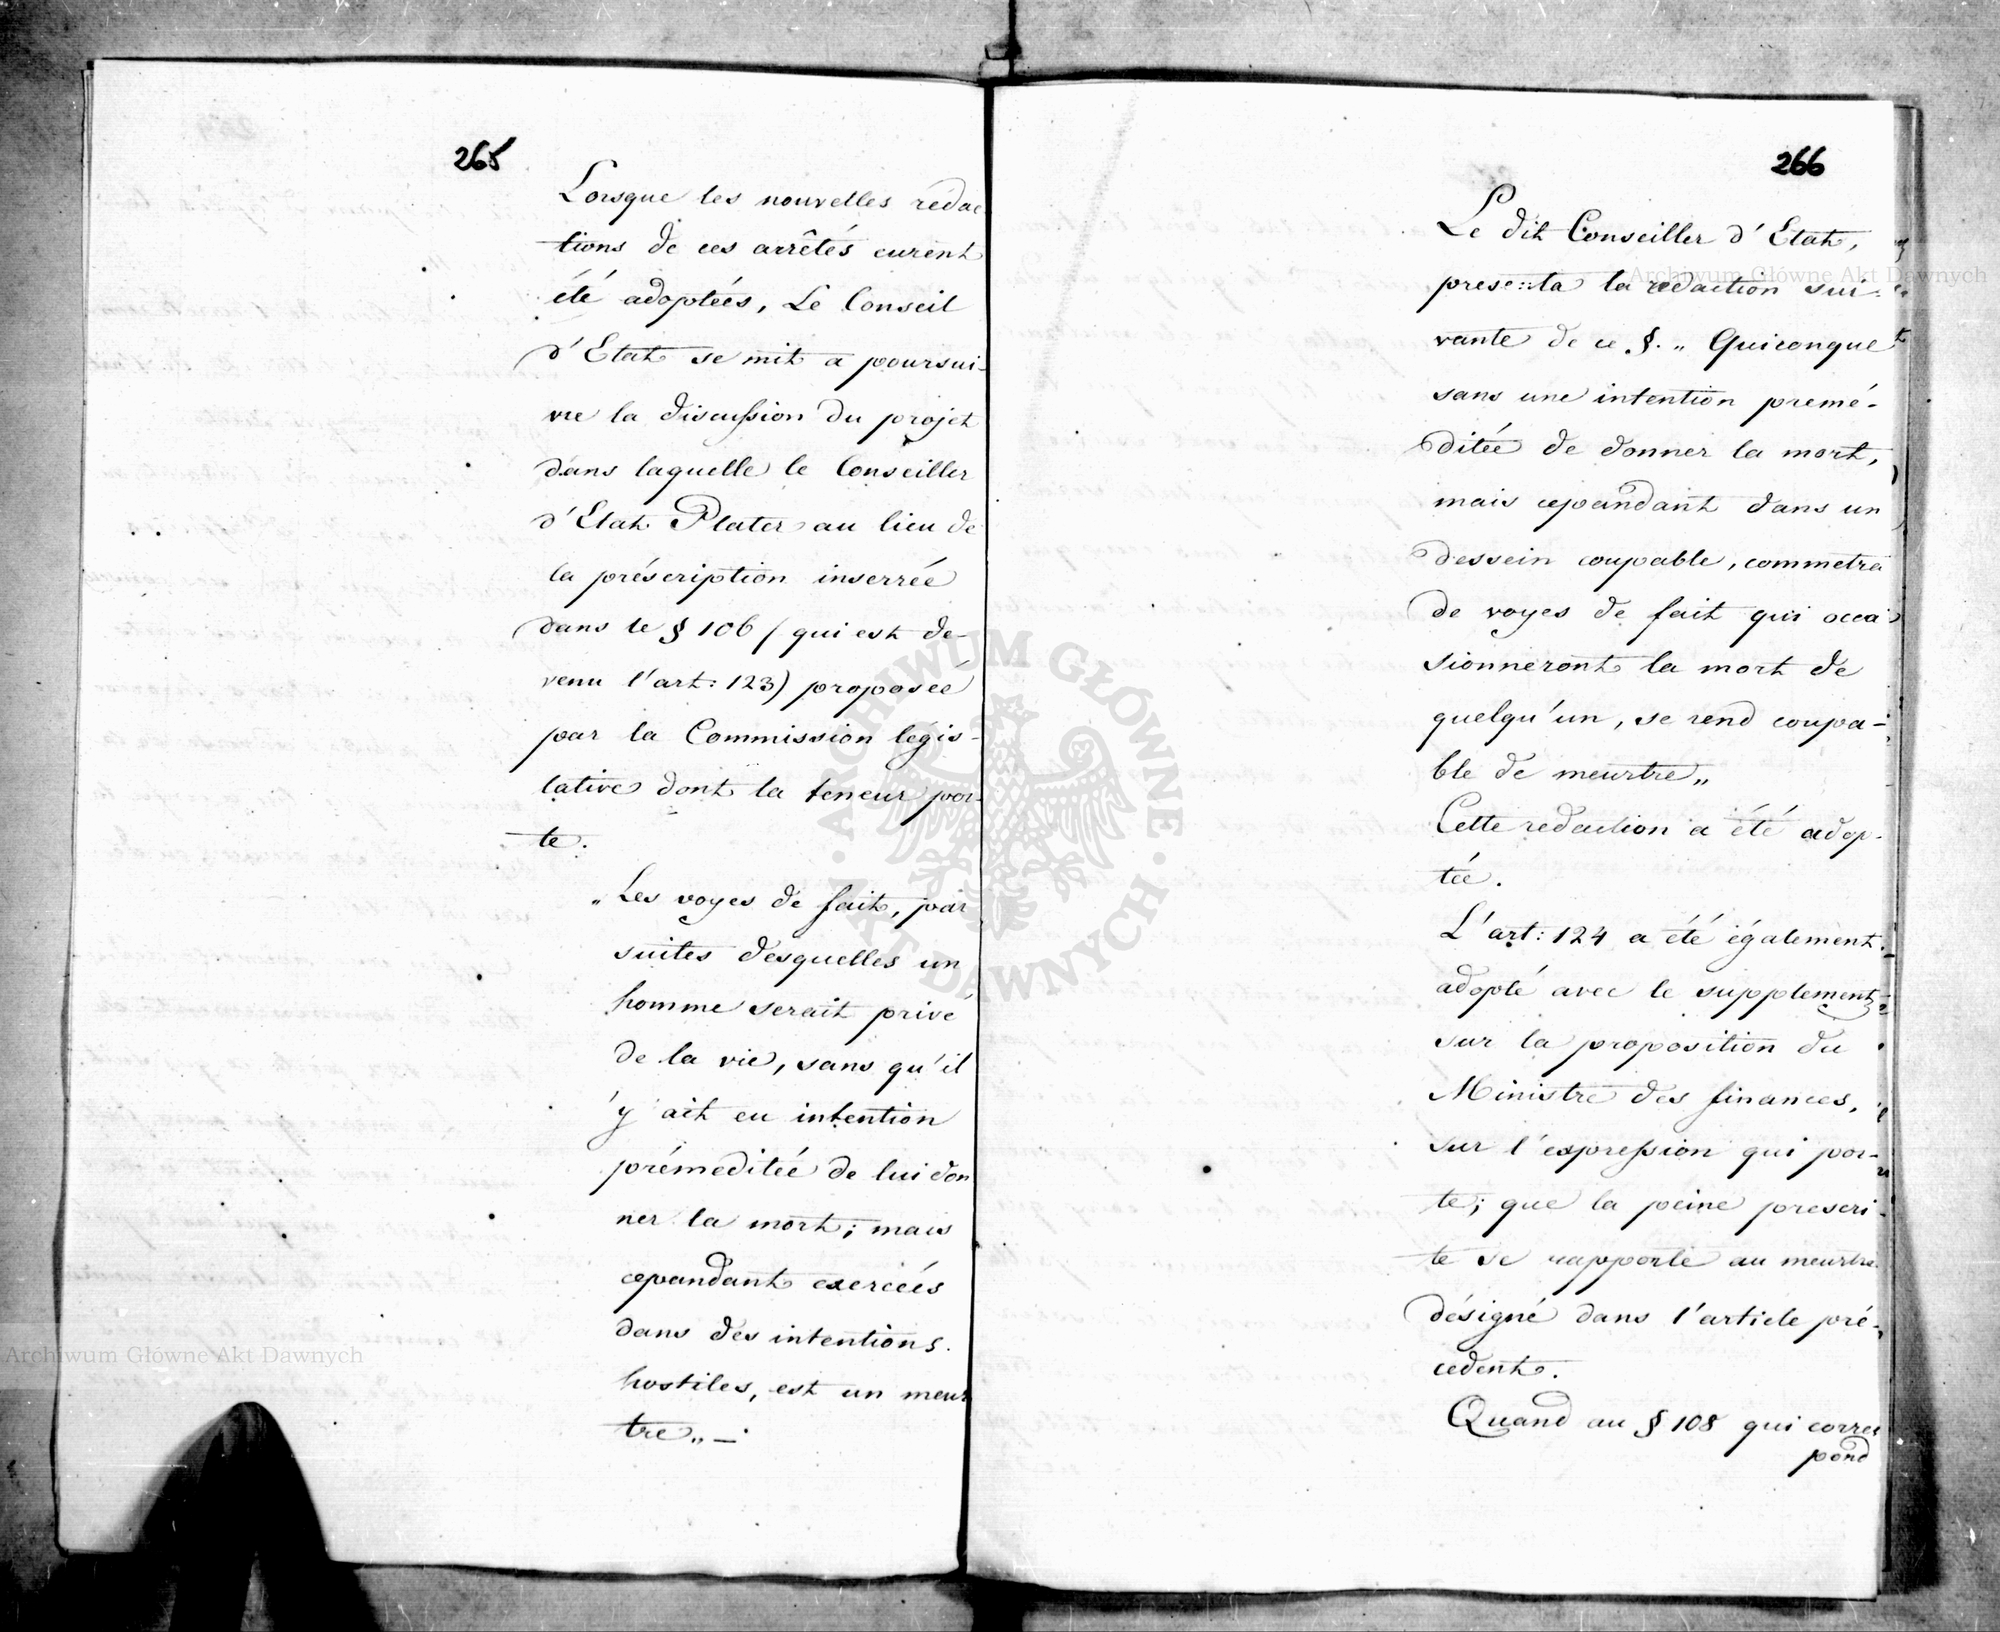 265
Lorsque les nouvelles rédac
tions de ces arrêtés eurent
été adoptées, Le Conseil
d'Etat se mit a poursui-
vre la discussion du projet
dans laquelle le Conseiller
d'Etat Plater au lieu de
la préscription inserrée
dans le § 106 / qui est de-
venu l'art: 123) proposée
par la Commission légis-
lative dont la teneur por-
te.
„Les voyes de fait, par
suites desquelles un
homme serait privé
de la vie, sans qu'il
y ait eu intention
prémeditée de lui don
ner la mort; mais
cepandant exercées
dans des intentions
hostiles, est un meur
tre„ —
266
Le dit Conseiller d'Etat,
presenta la redaction sui-
vante de ce §. „ Quiconque
sans une intention premé-
ditée de donner la mort,
mais cepandant dans un
dessein coupable, commetra
de voyes de fait qui occa
sionneront la mort de
quelqu'un, se rend coupa-
ble de meurtre„
Cette redaction a été adop-
tée.
L'art: 124 a été également
adopté avec le supplement
sur la proposition du
Ministre des finances,
sur l'expression qui por-
te; que la peine prescri-
te se rapporte au meurtre
désigné dans l'article pré-
cedent.
Quand au § 108 qui corres
pond
Archiwum Główne Akt Dawnych
ARCHIWUM GŁÓWNE AKT DAWNYCH
Archiwum Główne Akt Dawnych